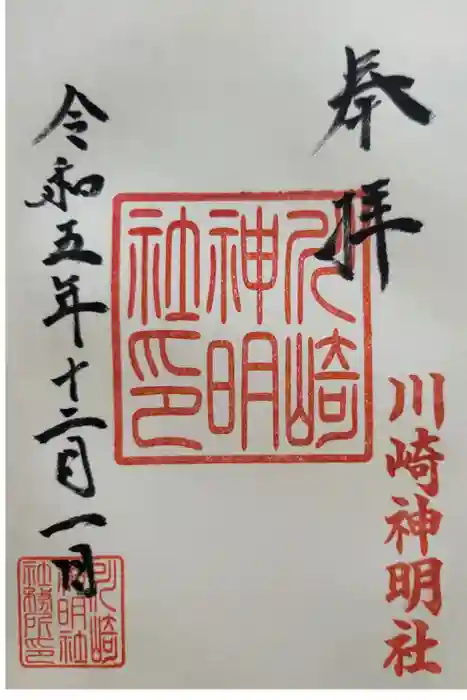 奉拝
川崎
神明
社印
川崎神明社
令和五年十二月一日
川崎
神明社
社務所印